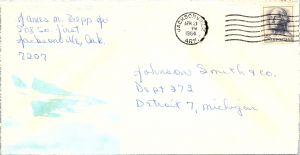 James M. Bopp Jr
503 So. First
Jacksonville, Ark.
72076
JACKSONV
APR 21
PM
1964
Johnson Smith & Co.
Dept 373
Detroit 7, Michigan